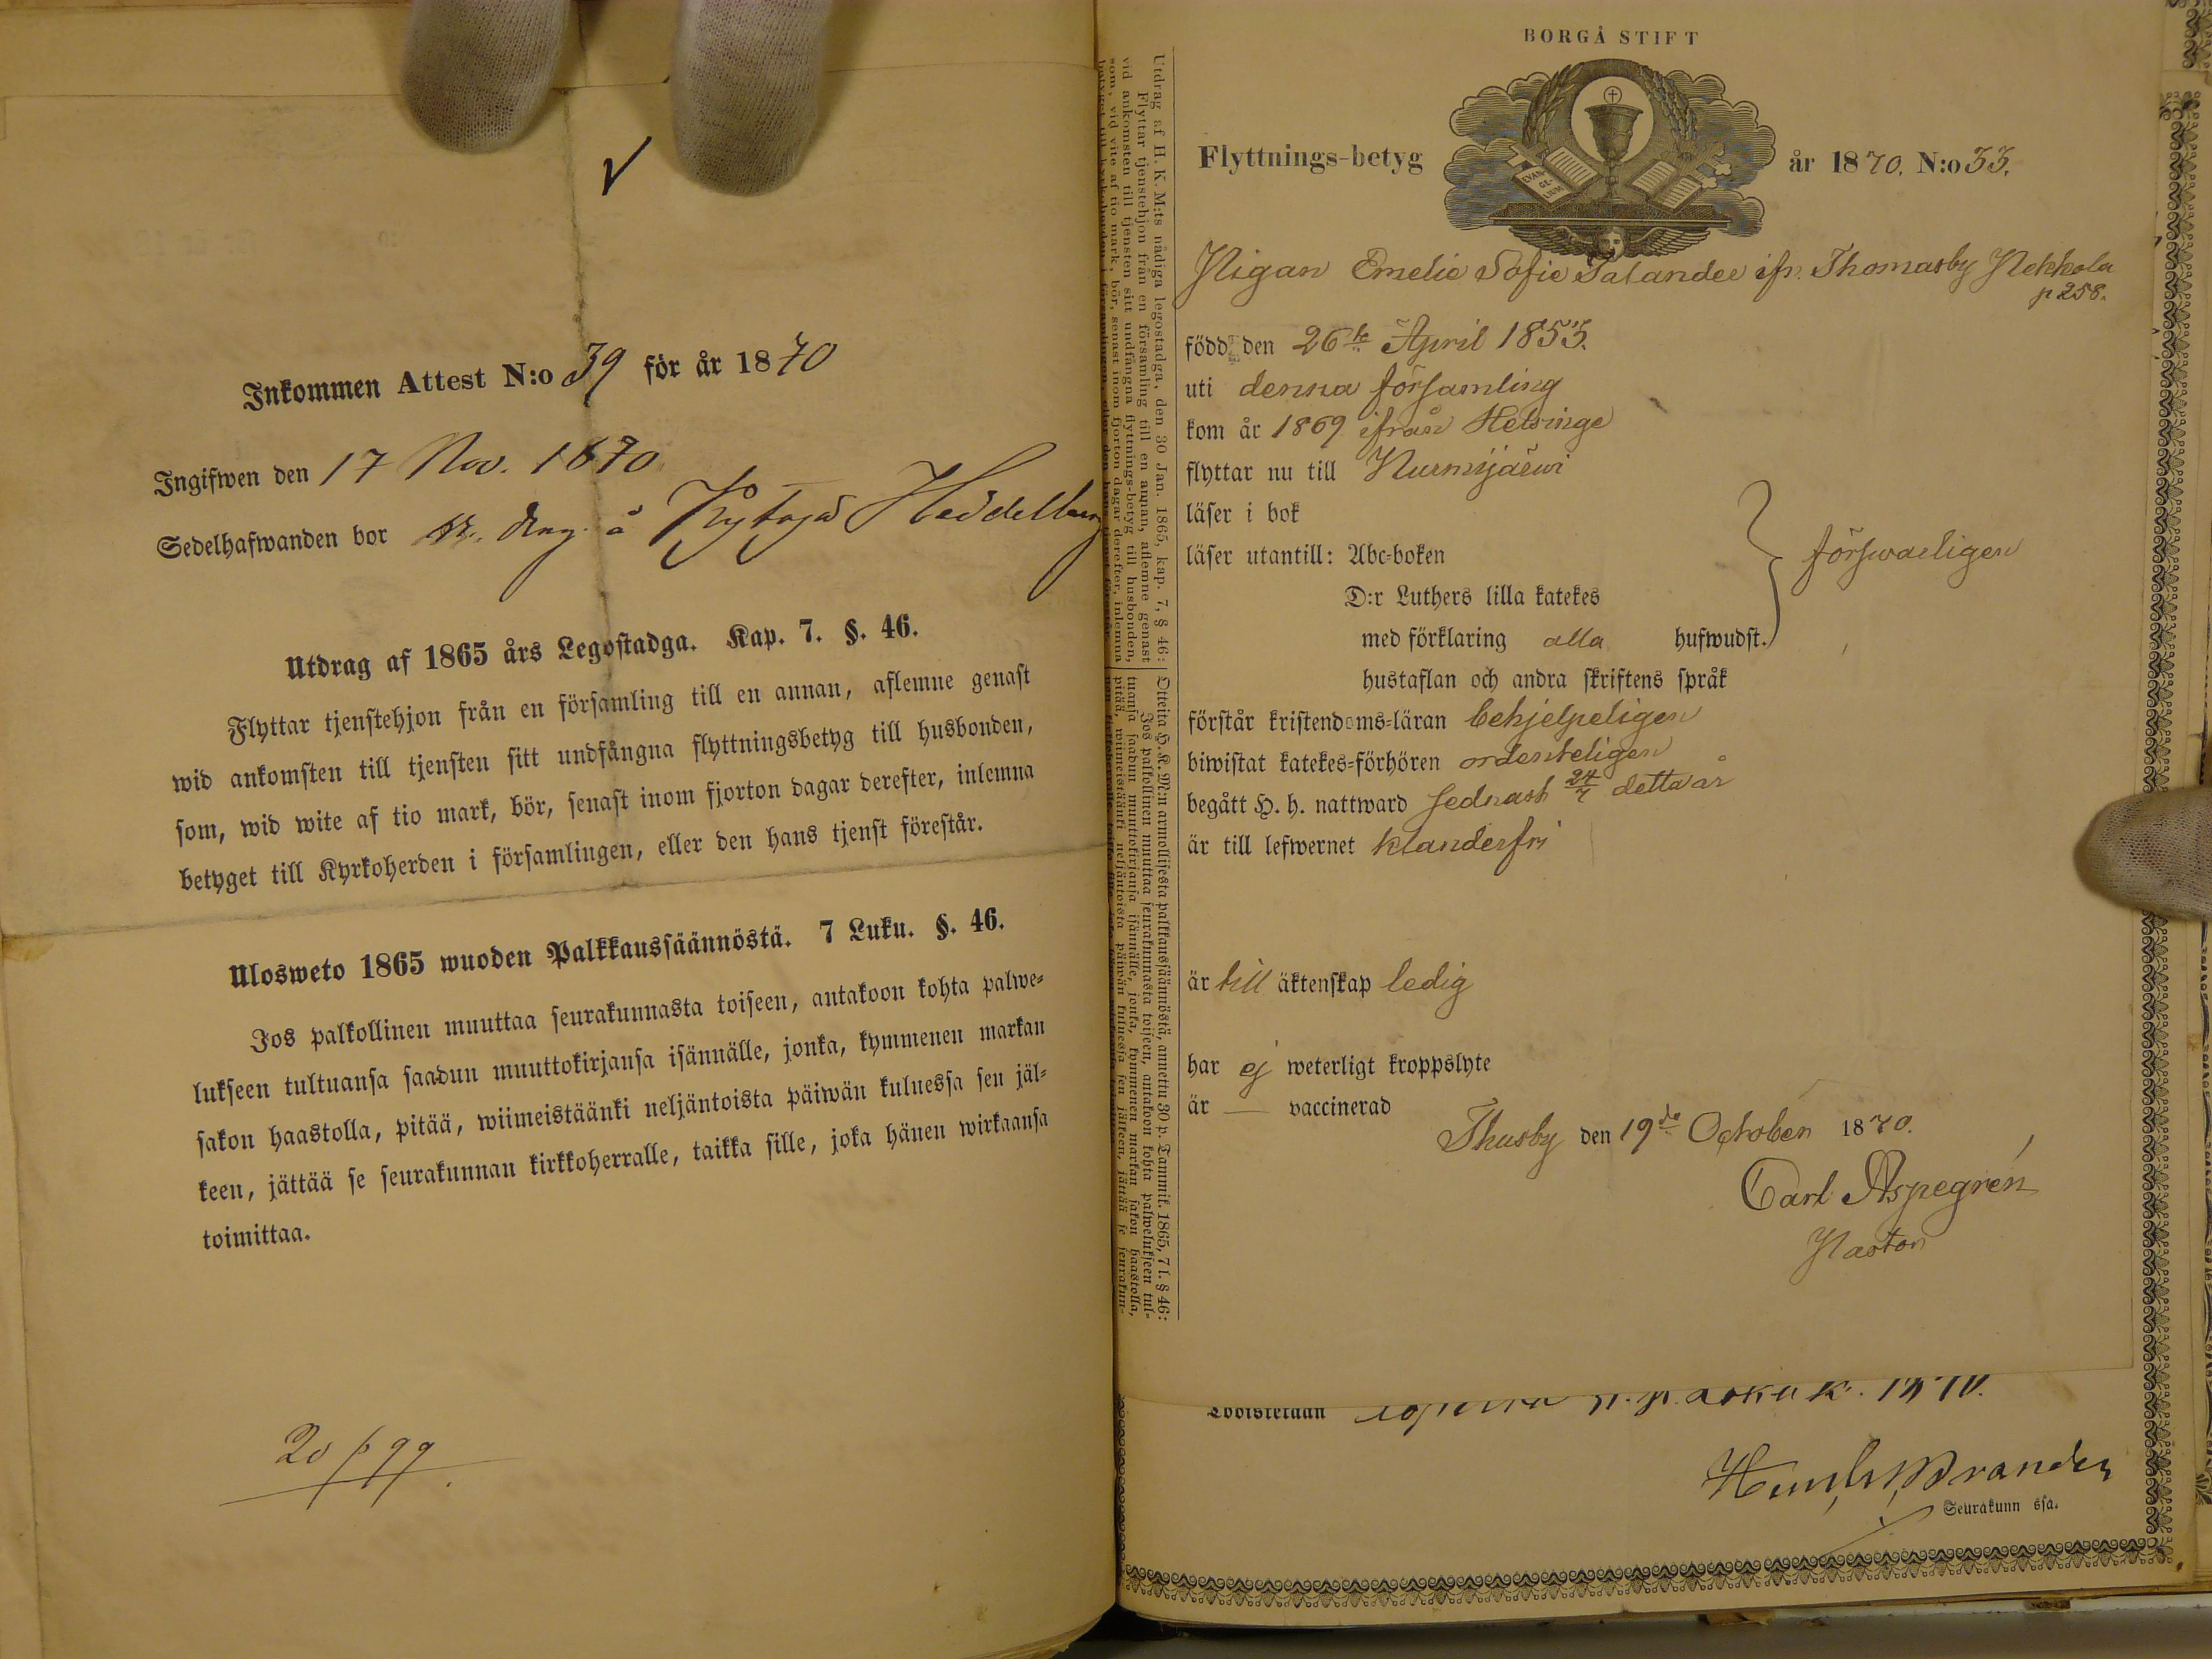 Inkommen Attest N:o 39 för år 1870
Ingifwen den 17 Nov. 1870
Sedelhafwanden bor å
Utdrag af 1865 års Legostadga. Kap. 7. §. 46.
Flyttar tjenstehjon från en församling till en annan, aflemne genast
wid ankomsten till tjensten sitt undfångna flyttningsbetyg till husbonden,
som, wid wite af tio mark, bör, senast inom fjorton dagar derefter, inlemna
betyget till Kyrkoherden i församlingen, eller den hans tjenst förestår.
Ulosweto 1865 wuoden Palkkaussäännöstä. 7 Luku. §. 46.
Jos palkollinen muuttaa seurakunnasta toiseen, antakoon kohta palwe-
lukseen tultuansa saadun muuttokirjansa isännälle, jonka, kymmenen markan
sakon haastolla, pitää, wiimeistäänki neljäntoista päiwän kuluessa sen jäl-
keen, jättää se seurakunnan kirkkoherralle, taikka sille, joka hänen wirkaansa
toimittaa.
Utdrag af H. K. M:ts nådiga legostadga, den 30 Jan. 1865, kap. 7, § 46:
Flyttar tjenstehjon från en församling till en annan, aflemne genast
vid ankomsten till tjensten sitt undfångna flyttnings-betyg till husbonden,
som, vid vite af tio mark, bör, senast inom fjorton dagar derefter, inlemna
Otteita H. K. M:n armollisesta palkkaussäännöstä, annettu 30 p. Tammik. 1865, 7 l. § 46:
Jos palkollinen muuttaa seurakunnasta toiseen, antakoon kohta palwelukseen tul-
tuansa saadun muuttokirjansa isännälle, jonka, kymmenen markan sakon haastolla,
pitää, wiimeistäänki neljäntoista päiwän kuluessa sen jälkeen, jättää se seurakun-
BORGÅ STIFT
Flyttnings-betyg år 1870. N:o 33.
EVAN-
GE-
LIUM
Pigan Emelie Sofie Salander ifr. Thomasby Pekkola
p 258.
född den 26te April 1853.
uti denna församling
kom år 1869 ifrån Helsinge
flyttar nu till Nurmijärwi
läser i bok
läser utantill: Abc-boken
D:r Luthers lilla katekes
med förklaring alla hufwudst.
hustaflan och andra skriftens språk
förswarligen
förstår kristendoms-läran behjelpeligen
biwistat katekes-förhören ordenteligen
begått H. h. nattward sednast 24/7 detta år
är till lefwernet klanderfri
är till äktenskap ledig
har ej weterligt kroppslyte
är — vaccinerad
Thusby den 19de October 1870.
Carl Aspegrén
Pastor
Seurakunn ssa.